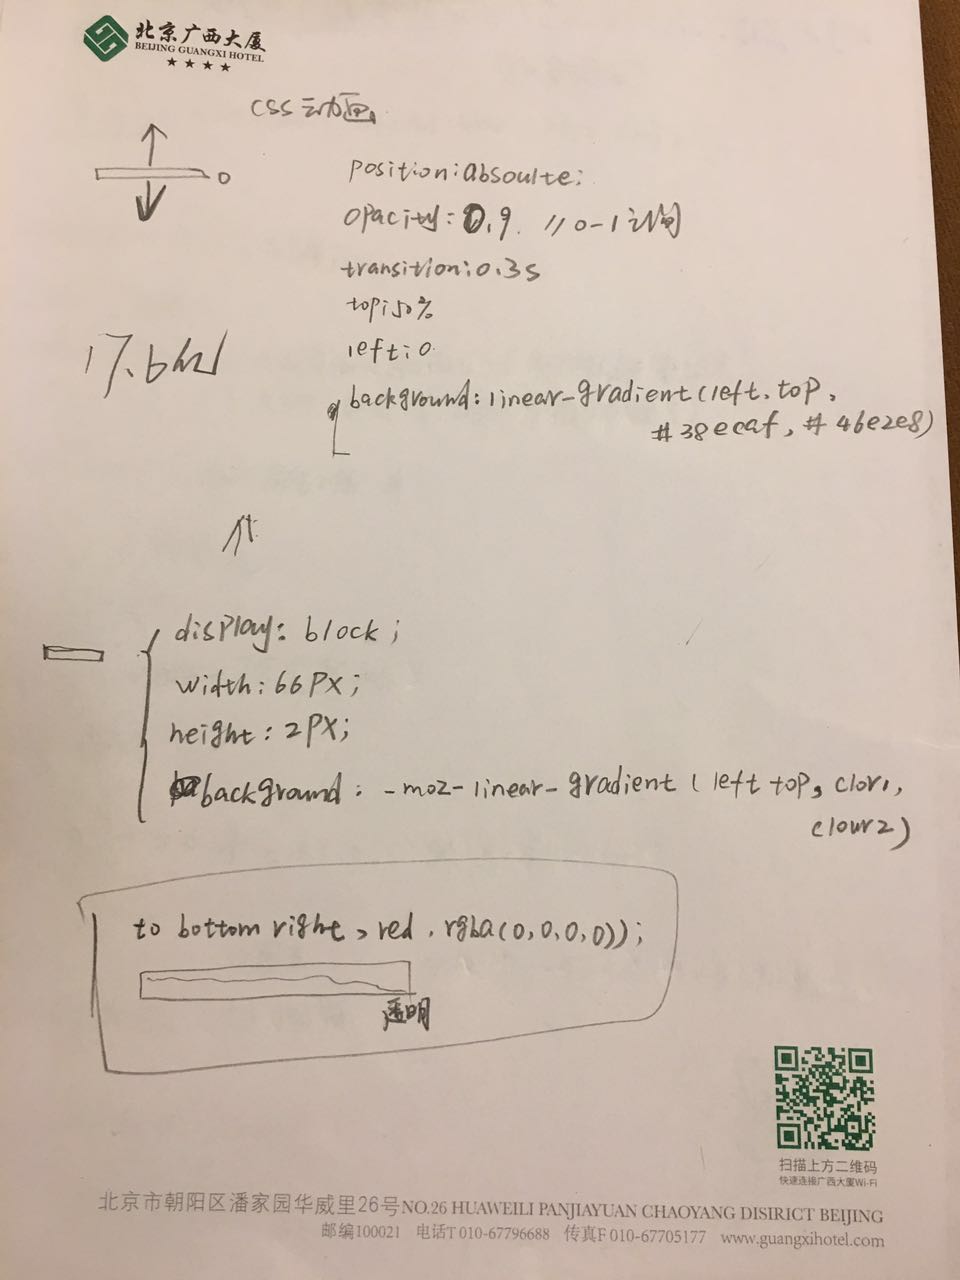 北京广西大厦
BEIJING GUANGXI HOTEL
css动画
0
position:absoulte;
opacity:0.9. //0-1之间
transition:0.3s
top:50%
left:0
17.6
background:linear-gradient(left.top,
#38ecaf,#46e2e8)
display: block;
width:66PX;
height:2PX;
background: -moz-linear-gradient(left top, clor1,
clour2)
to bottom right, red, rgba(0,0,0,0));
透明
扫描上方二维码
快速连接广西大厦Wi-Fi
北京市朝阳区潘家园华威里26号NO.26 HUAWEILI PANJIAYUAN CHAOYANG DISIRICT BEIJING
邮编100021 电话T 010-67796688 传真F 010-67705177 www.guangxihotel.com